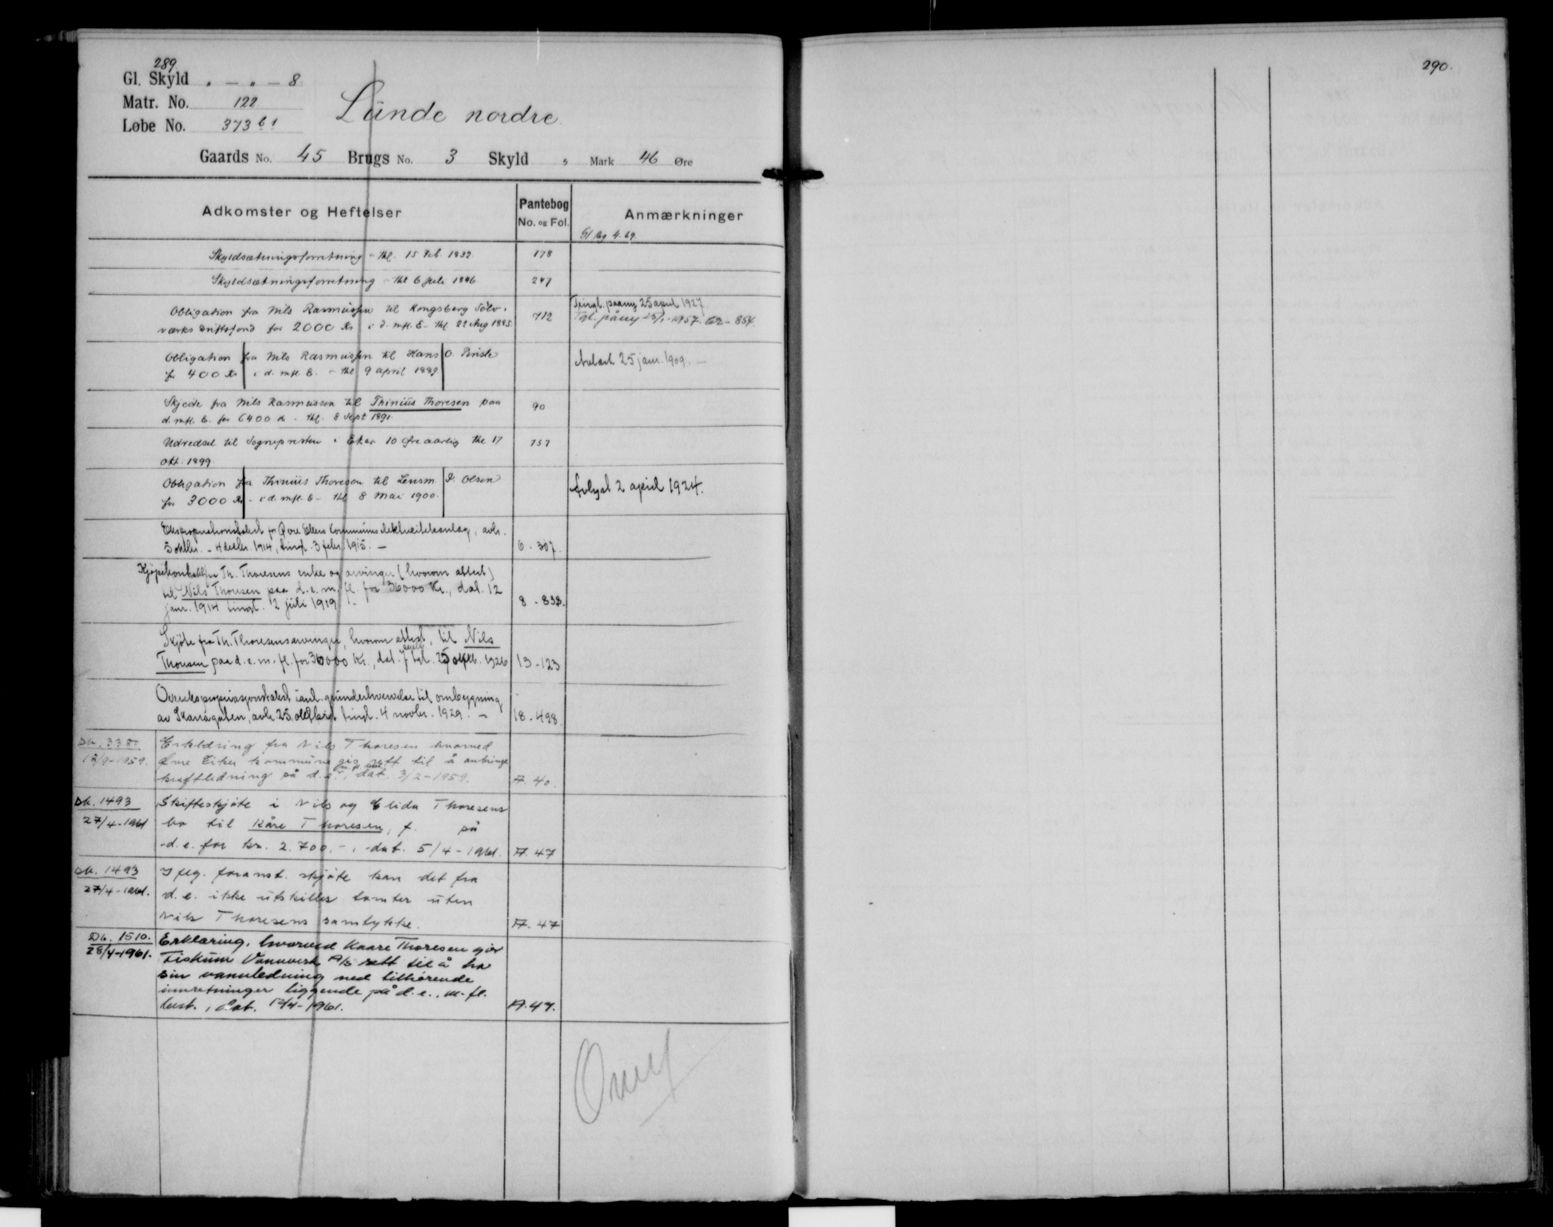 289
Gl. Skyld " — " — 8
Matr. No. 122
Løbe No. 373 b 1
Lünde nordre
Gaards No. 45 Brugs No. 3 Skyld , Mark 46 Øre
Adkomster og Heftelser
Pantebog
No. og Fol.
Anmærkninger
Skyldsætningsforretning - thl. 15 Feb. 178
Skyldsætningsforretning - thl 6 1886 247
Obligation fra Nils Rasmussen til Kongsberg Sølv-
værks Driftsfond for 2000 Kr i d. mfl. E - thl 22 Aug 1885 712
Tingl. paany 25 april 1927.
Tgl. påny 1957. 854.
Obligation fra Nils Rasmussen til Hans O.
for 400 Kr i d. mfl. E. - thl 9 april 1889
Avlæst 25 jan. 1909. —
Skjøde fra Nils Rasmussen til Thinius Thoresen paa
d. mfl. E. for 6400 Kr - thl. 8 Sept 1891 90
Udredsel til Sognepresten i Eker 10 Øre aarlig thl 17
Okt. 1899. 757
Obligation fra Thinius Thoresen til Lensm. P. Olsen
for 3000 Kr - i d. mfl. E - thl 8 Mai 1900.
Avlyst 2 april 1924.
Ekspropriationstakst for Øvre Ekers kommunes elektricitetsanlæg, avh.
5 oktbr. - 4 decbr. 1914, tingl. 3 febr. 1915. — 6 - 307.
Kjøpekontrakt fra Th. Thoresens enke og arvinger (hvorom attest)
til Nils Thoresen paa d. e. m. fl. for 36000 Kr., dat. 12
jan. 1914 tingl. 12 juli 1919. 8 - 838.
Skjøte fra Th. Thoresens arvinger, hvorom attest, til Nils
Thoresen paa d. e. m. fl. for 36000 Kr., dat. 7 tgl. 25 oktb. 1926 13 - 123
av Skaragaten, avh. 25 oktbr. tingl. 4 novbr. 1929. — 18 - 498
Db. 338
12/2-1959.
Erklæring fra Nils Thoresen hvorved
Øvre Eiker kommune gis rett til å anbringe
kraftledning på d.e. dat. 3/2-1959. A. 40.
Db. 1493
27/4-1961
Skifteskjøte i Nils og Elida Thoresens
bo til Kåre Thoresen, f. på
d.e. for kr. 2.700.-, dat. 5/4-1961. A. 47
Db. 1493
27/4-1961.
Iflg. foranst. skjøte kan det fra
d.e. ikke utskilles tomter uten
Nils Thoresens samtykke. A. 47
Db. 1510.
28/4-1961.
Erklæring, hvorved Kaare Thoresen gir
Fiskum Vannverk A/S rett til å ha
sin vannledning med tilhørende
innretninger liggende på d.e., m. fl.
bust., dat. 12/4-1961. A. 47.
290.